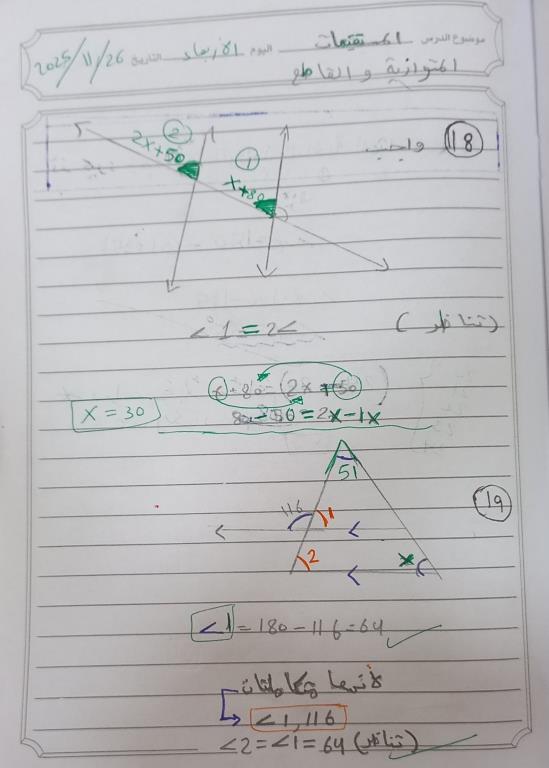 موضوع الدرس المستقيمات اليوم الأربعاء التاريخ 2025/11/26
المتوازية والقاطع
18 واجب
2x+50 2
x+80 1
∠1 = 2∠ (تناظر)
x+80 = (2x+50)
80-50 = 2x-1x
x = 30
19
51
116 1
2 x
∠1 = 180-116=64
لأنهما متكاملتان
∠1, 116
∠2=∠1=64 (تناظر)